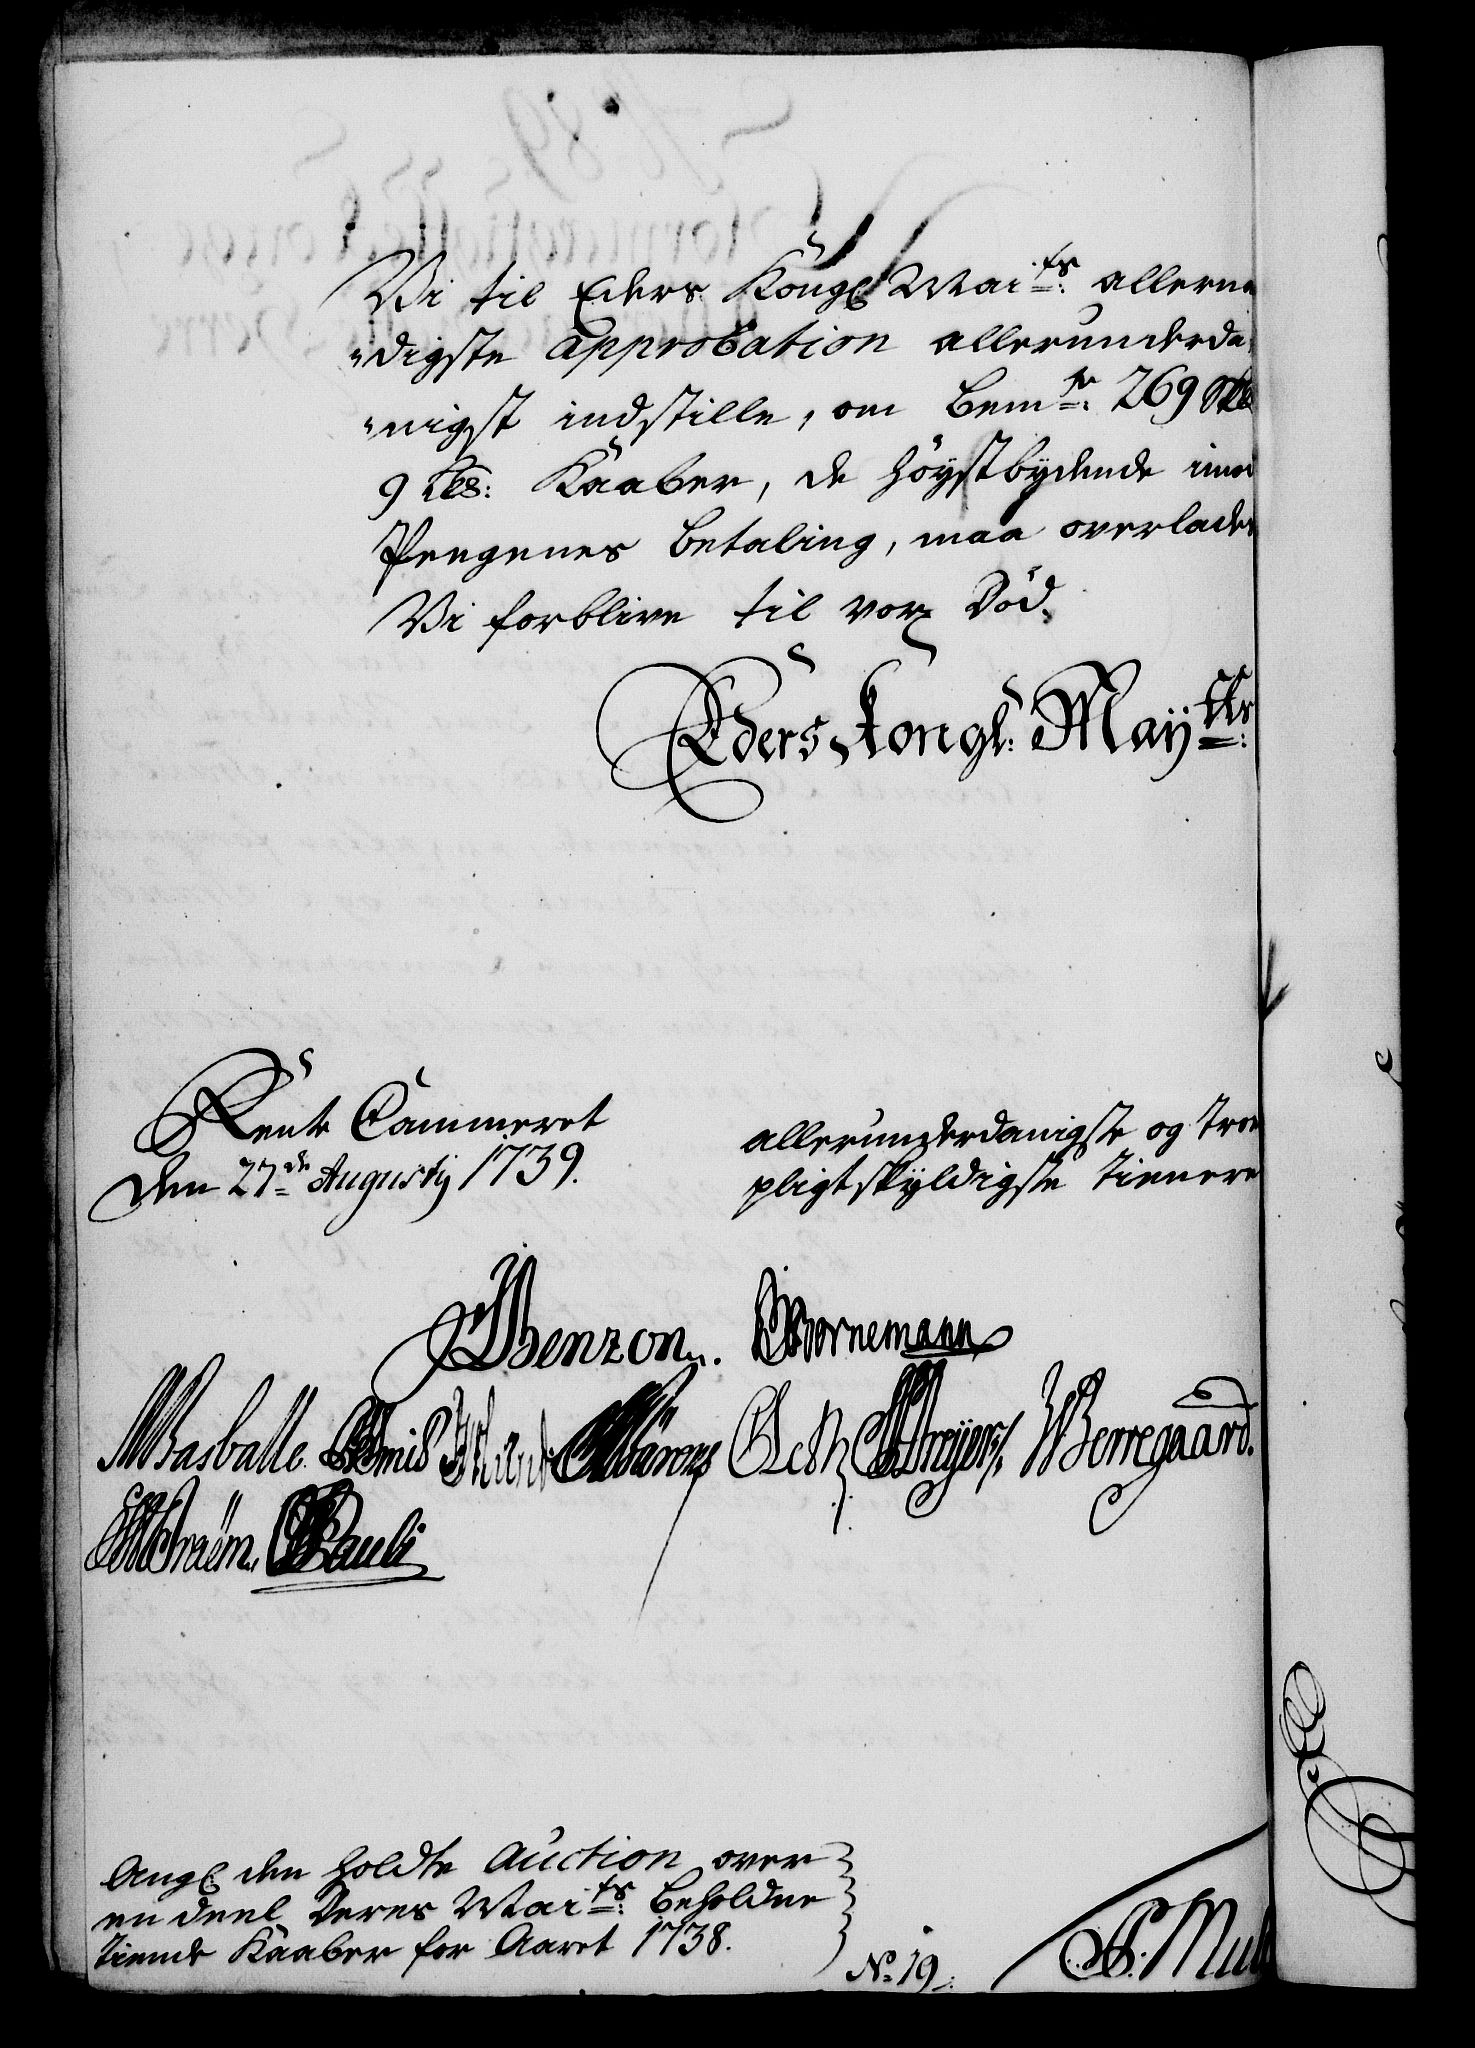 Vi til Eders Kongl Mai<sup>ts</sup>: allerna
"digste approbation allerunderda
"nigst indstille, om bem<sup>te</sup>: 269
9 Kaaber, de höystbydende imod
Pengenes betaling, maa overlades
Vi forblive til vor Död.
Eders Kongl: May<sup>tts</sup>:
Rente Cammeret
den 27<sup>de</sup> Augustij 1739.
allerunderdanigste og troe
pligtskyldigste tienere
Benzon. Bornemann
Basballe. Berregaard.
Pauli
Angl den holdte Auction over
en deel Deres Mai<sup>ts</sup>: beholdne
tiende Kaaber for Aaret 1738.
No: 19.